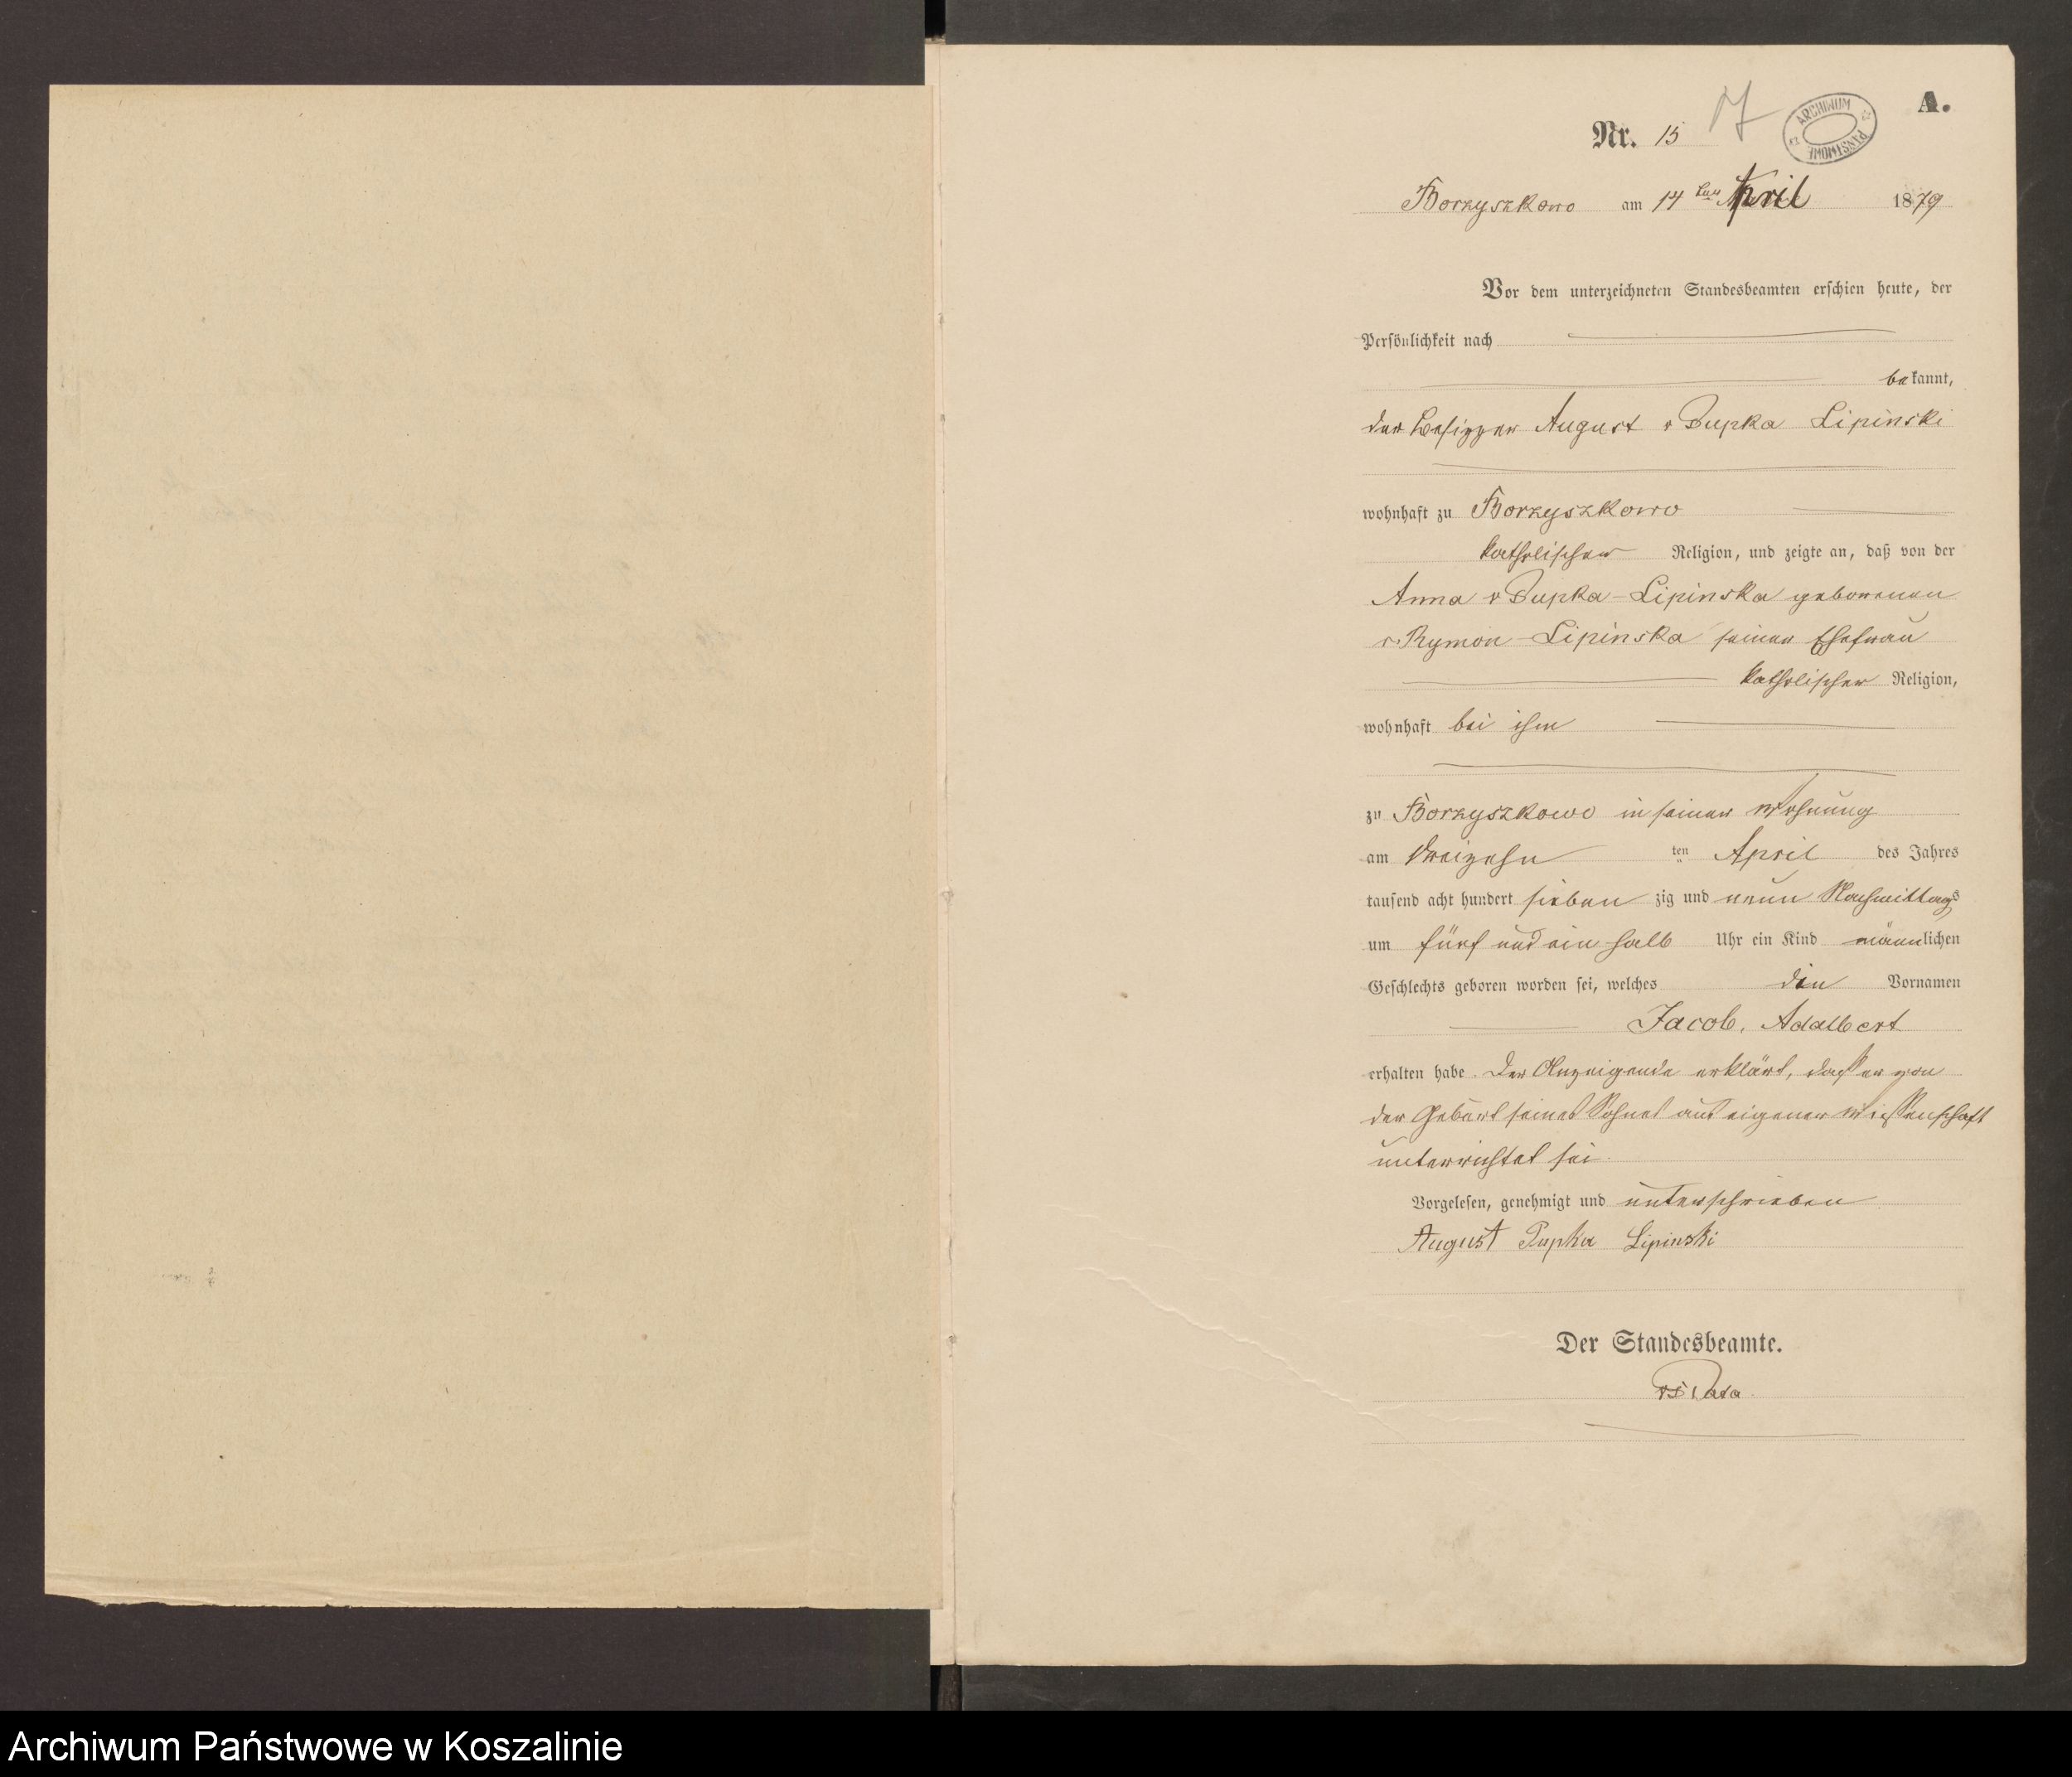 A.
Nr. 15
7
ARCHIWUM PAŃSTWOWE
Borzyszkowo am 14 ten April 1879
Vor dem unterzeichneten Standesbeamten erschien heute, der
Persönlichkeit nach
bekannt,
der Besitzer August v Pupka Lipinski
wohnhaft zu Borzyszkowo
katholischer Religion, und zeigte an, daß von der
Anna v Pupka-Lipinska geborenen
v. Rymon-Lipinska seiner Ehefrau
katholischer Religion,
wohnhaft bei ihm
zu Borzyszkowo in seiner Wohnung
am dreizehn ten April des Jahres
tausend acht hundert sieben zig und neun Nachmittags
um fünf und ein halb Uhr ein Kind männlichen
Geschlechts geboren worden sei, welches den Vornamen
Jacob, Adalbert
erhalten habe. Der Anzeigende erklärt, daß er von
der Geburt seines Sohnes aus eigener Wissenschaft
unterrichtet sei.
Vorgelesen, genehmigt und unterschrieben
August Pupka Lipinski
Der Standesbeamte.
Archiwum Państwowe w Koszalinie